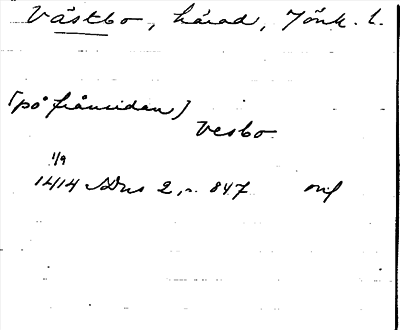 Västbo, härad, Jönk. l.
[på frånsidan]
Vesbo
1/9
1414 SDns 2, s. 847 orig